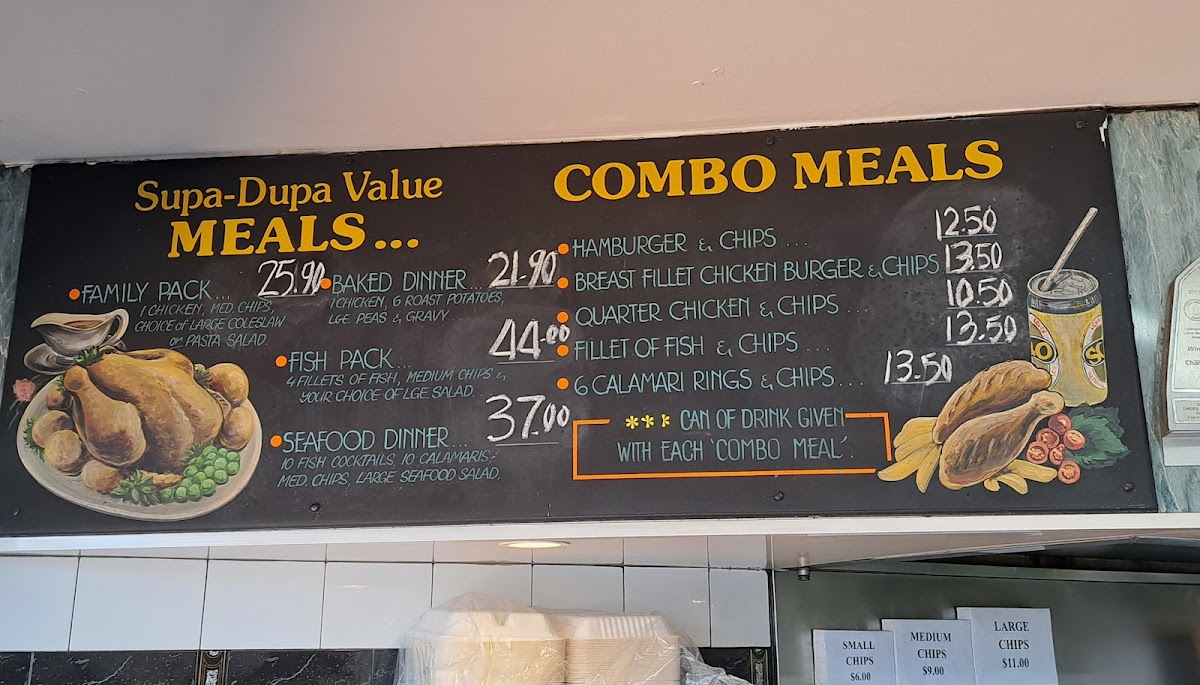 Supa-Dupa Value
MEALS...
FAMILY PACK... 25.90
1 CHICKEN, MED. CHIPS,
CHOICE of LARGE COLESLAW
or PASTA SALAD.
BAKED DINNER... 21.90
1 CHICKEN, 6 ROAST POTATOES,
LGE. PEAS & GRAVY.
FISH PACK... 44.00
4 FILLETS OF FISH, MEDIUM CHIPS &
YOUR CHOICE OF LGE. SALAD.
SEAFOOD DINNER... 37.00
10 FISH COCKTAILS, 10 CALAMARIS,
MED. CHIPS, LARGE SEAFOOD SALAD.
COMBO MEALS
HAMBURGER & CHIPS ... 12.50
BREAST FILLET CHICKEN BURGER & CHIPS 13.50
QUARTER CHICKEN & CHIPS ... 10.50
FILLET OF FISH & CHIPS ... 13.50
6 CALAMARI RINGS & CHIPS.... 13.50
*** CAN OF DRINK GIVEN
WITH EACH 'COMBO MEAL'.
SMALL
CHIPS
$6.00
MEDIUM
CHIPS
$9.00
LARGE
CHIPS
$11.00